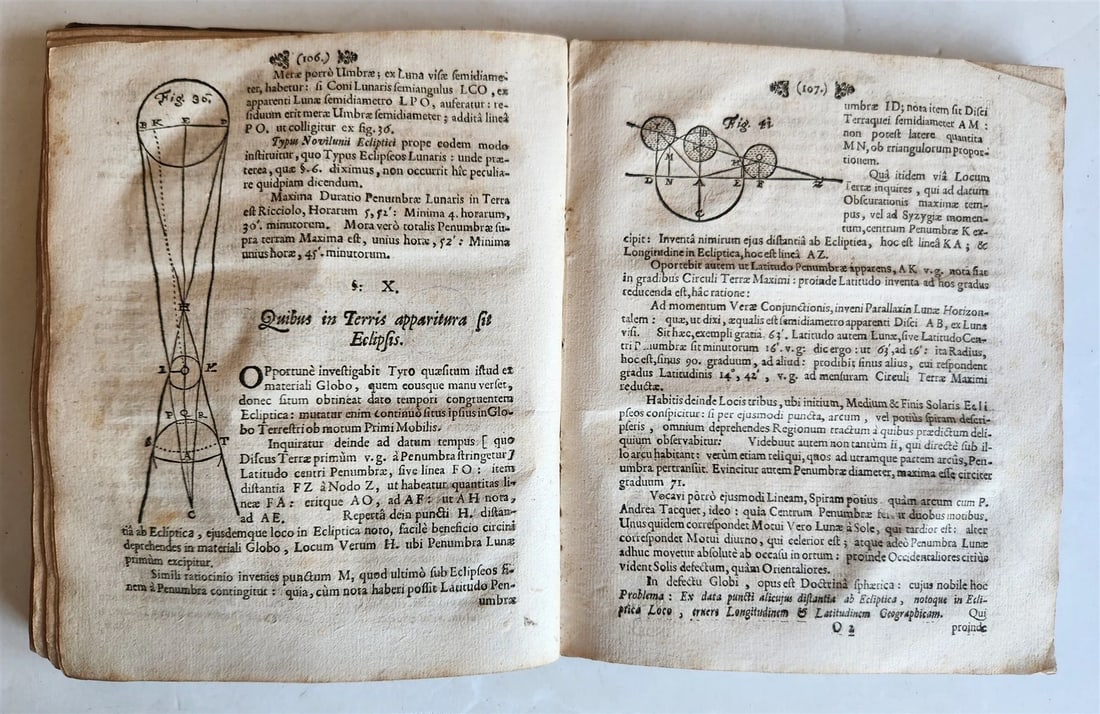 (106.)
Fig. 36.
Meræ porrò Umbræ; ex Luna visæ semidiame-
ter, habetur: si Coni Lunaris semiangulus LCO, ex
apparenti Lunæ semidiametro LPO, auferatur: re-
siduum erit meræ Umbræ semidiameter; addità lineâ
PO. ut colligitur ex fig. 36.
Typus Novilunii Ecliptici prope eodem modo
instituitur, quo Typus Eclipseos Lunaris: unde præ-
terea, quæ §.6. diximus, non occurrit hîc peculia-
re quidpiam dicendum.
Maxima Duratio Penumbræ Lunaris in Terra
est Ricciolo, Horarum 5, 52': Minima 4. horarum,
30'. minutorum. Mora verò totalis Penumbræ su-
pra terram Maxima est, unius horæ, 52': Minima
unius horæ, 45'. minutorum.
§: X.
Quibus in Terris apparitura sit
Eclipsis.
OPportunè investigabit Tyro quæsitum istud ex
materiali Globo, quem eousque manu verset,
donec situm obtineat dato tempori congruentem
Ecliptica: mutatur enim continuò situs ipsius in Glo-
bo Terrestri ob motum Primi Mobilis.
Inquiratur deinde ad datum tempus [ quo
Discus Terræ primùm v.g. à Penumbra stringetur ]
Latitudo centri Penumbræ, sive linea FO: item
distantia FZ à Nodo Z, ut habeatur quantitas li-
neæ FA: eritque AO, ad AF: ut AH nota,
ad AE. Repertâ dein puncti H. distan-
tiâ ab Ecliptica, ejusdemque loco in Ecliptica noto, facilè beneficio circini
deprehendes in materiali Globo, Locum Verum H. ubi Penumbra Lunæ
primùm excipitur.
Simili ratiocinio invenies punctum M, quod ultimò sub Eclipseos fi-
nem à Penumbra contingitur: quia, cùm nota haberi possit Latitudo Pen-
umbræ
(107.)
Fig. 41
umbræ ID; nota item sit Disci
Terraquei semidiameter AM:
non potest latere quantita
MN, ob triangulorum propor-
tionem.
Quâ itidem viâ Locum
Terræ inquires, qui ad datum
Obscurationis maximæ tem-
pus, vel ad Syzygiæ momen-
tum, centrum Penumbræ K ex-
cipit: Inventâ nimirum ejus distantiâ ab Ecliptica, hoc est lineâ KA; &
Longitudine in Ecliptica, hoc est lineâ AZ.
Oportebit autem ut Latitudo Penumbræ apparens, AK v.g. nota fiat
in gradibus Circuli Terræ Maximi: proinde Latitudo inventa ad hos gradus
reducenda est, hâc ratione:
Ad momentum Veræ Conjunctionis, inveni Parallaxin Lunæ Horizon-
talem: quæ, ut dixi, æqualis est semidiametro apparenti Disci AB, ex Luna
visi. Sit hæc, exempli gratiâ 63'. Latitudo autem Lunæ, sive Latitudo Cen-
tri umbræ sit minutorum 16'. v.g: dic ergo: ut 63', ad 16': ita Radius,
hoc est, sinus 90. graduum, ad aliud: prodibit sinus alius, cui respondent
gradus Latitudinis 14°, 42', v.g. ad mensuram Circuli Terræ Maximi
reductæ.
Habitis deinde Locis tribus, ubi initium, Medium & Finis Solaris Ecli
pseos conspicitur: si per ejusmodi puncta, arcum, vel potiùs spiram descri-
pseris, omnium deprehendes Regionum tractum à quibus prædictum deli-
quium observabitur: Videbunt autem non tantùm ii, qui directè sub il-
lo arcu habitant: verùm etiam reliqui, quos ad utramque partem arcûs, Pen-
umbra pertransiit. Evincitur autem Penumbræ diameter, maxima esse circiter
graduum 71.
Vocavi pòrrò ejusmodi Lineam, Spiram potius quàm arcum cum P.
Andrea Tacquet, ideo: quia Centrum Penumbræ duobus motibus.
Unus quidem correspondet Motui Vero Lunæ à Sole, qui tardior est: alter
correspondet Motui diurno, qui celerior est; atque adeò Penumbra Lunæ
adhuc movetur absolutè ab occasu in ortum: proinde Occidentaliores citiùs
vident Solis defectum, quàm Orientaliores.
In defectu Globi, opus est Doctrinâ sphæricâ: cujus nobile hoc
Problema: Ex data puncti alicujus distantia ab Ecliptica, notoque in Ecli-
ptica Loco, eruere Longitudinem & Latitudinem Geographicam. Qui
O 2 proinde